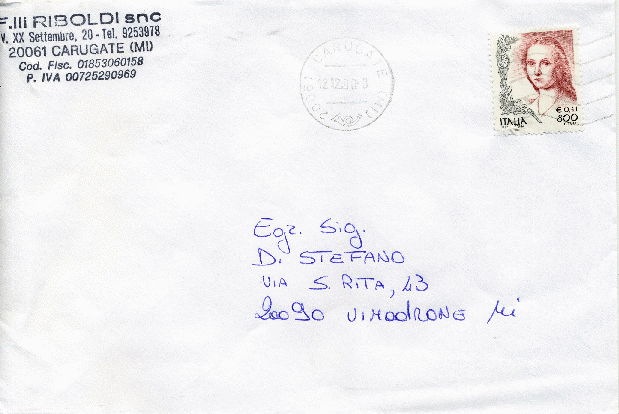 F.lli RIBOLDI snc
V. XX Settembre, 20 - Tel. 9253978
20061 CARUGATE (MI)
Cod. Fisc. 01853060158
P. IVA 00725290969
20061 CARUGATE (MI)
ITALIA
€ 0,41
800
Egr. Sig.
Di STEFANO
VIA S. RITA, 43
20090 VIMODRONE Mi